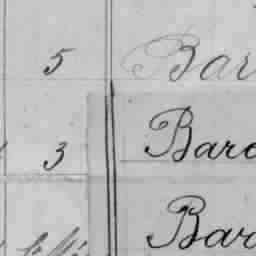 5 Bar
3 Barc
Bar